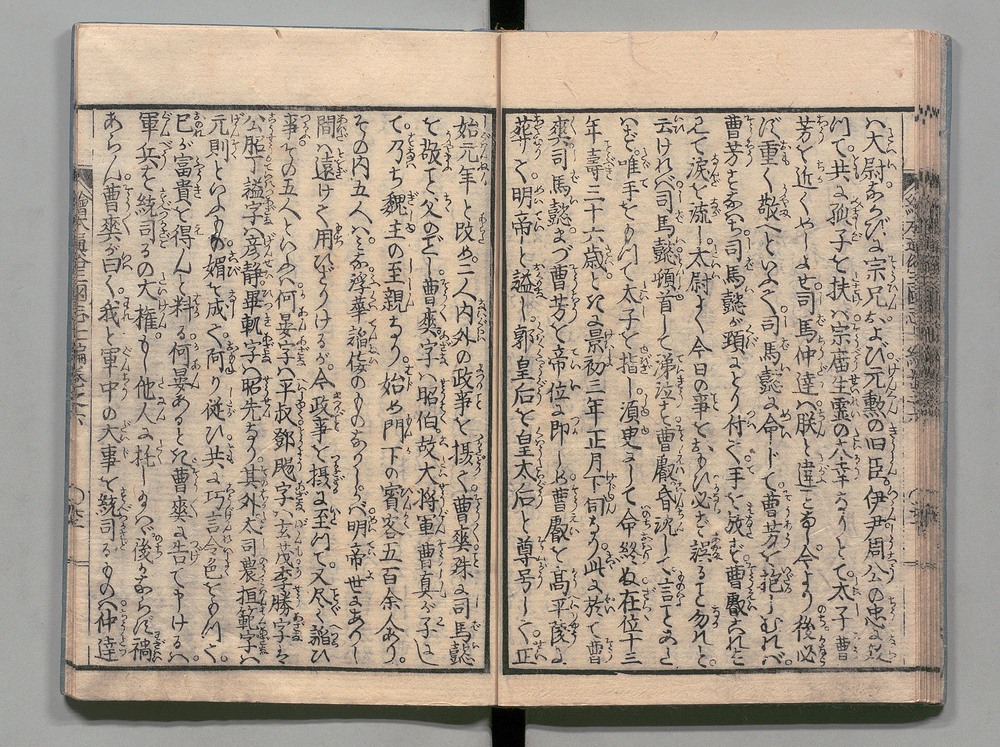 ハ大尉ならびに宗兄および元勲の旧臣伊尹周公の忠に效
つて共に孤子を扶ハ宗廟生霊の大幸なりとて太子曹
芳を近くやりよせ司馬仲達ハ朕と違ことなし今より後必
ず重く敬へといふて司馬懿に命じて曹芳を抱しむれバ
曹芳すなはち司馬懿が頸にとり付て手を放さず曹叡これを
見て涙を流し太尉よく今日の事をおもひ必ず誤ると勿れと
云けれバ司馬懿頓首して涕泣す曹叡昏沈して言とあた
ハず唯手をもつて太子を指し須臾にして命終ぬ在位十三
年壽三十六歳ときに景初三年正月下旬なり此に於て曹
爽司馬懿まづ曹芳を帝位に即しめ曹叡を高平陵に
葬て明帝と謚し郭皇后を皇太后と尊号して正
始元年と改め二人内外の政事を摂く曹爽殊に司馬懿
を敬こと父のごとし曹爽字ハ昭伯故大将軍曹真が子に
て乃ち魏王の王親なり始め門下の賓客五百余人あり
その内五人ハミな浮華謟佞のものなりしかバ明帝世にありし
間ハ遠けて用ひざりけるが今政事を摂に至つて又尽く謟ひ
事その五人といふハ何晏字ハ平叔鄧颺字ハ玄茂李勝字ハ
公昭丁謐字ハ彦静畢軌字ハ昭先なり其外大司農担範字ハ
元則といふもの媚を成て阿り従ひ共に巧言令色をもつて
已が富貴を得んと料る何晏あるとき曹爽に告て申けるハ
軍兵を統司るの大権もし他人に托し玉ハヾ後かならず禍
あらん曹爽が曰く我と軍中の大事を統司るものハ仲達
繪本通俗三國志